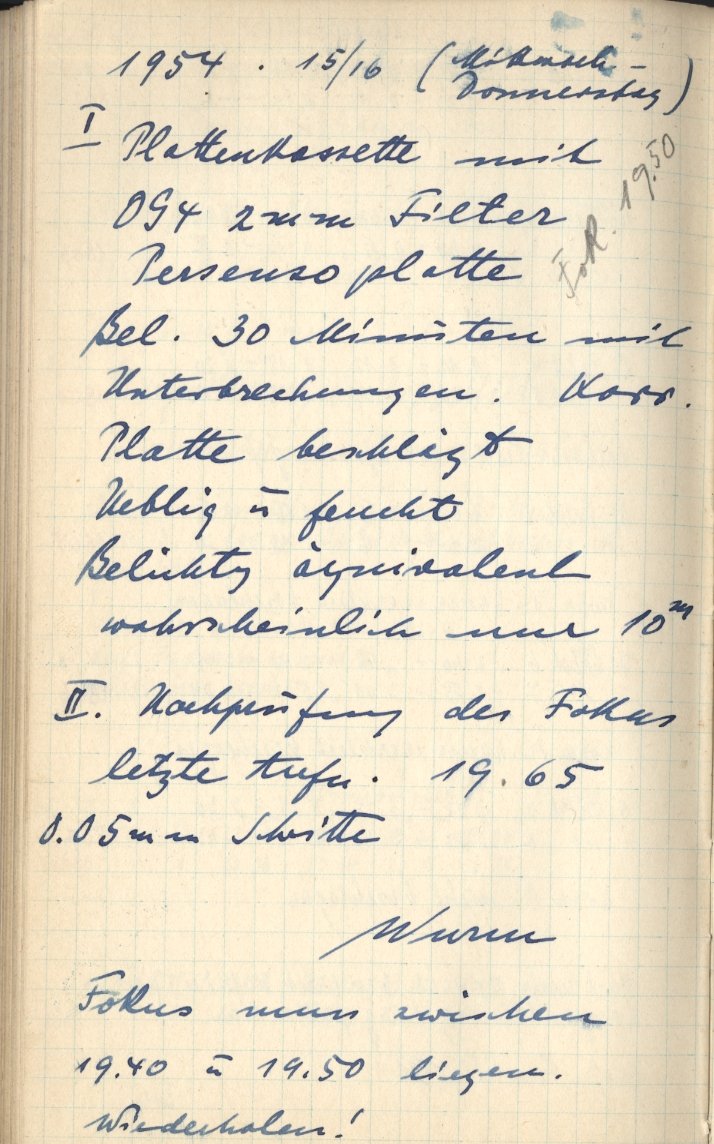 1954 . 15/16 (Mittwoch -
Donnerstag)
I Plattenkassette mit
Fok. 19.50
OG4 2mm Filter
Persenso platte
Bel. 30 Minuten mit
Unterbrechungen. Korr.
Platte beschlägt
Neblig ü feucht
Belichtg äquivalent
wahrscheinlich nur 10m
II. Nachprüfung des Fokus
letzte Aufn. 19.65
0.05mm Schritte
Wurm
Fokus muss zwischen
19.40 ü 19.50 liegen.
Wiederholen!